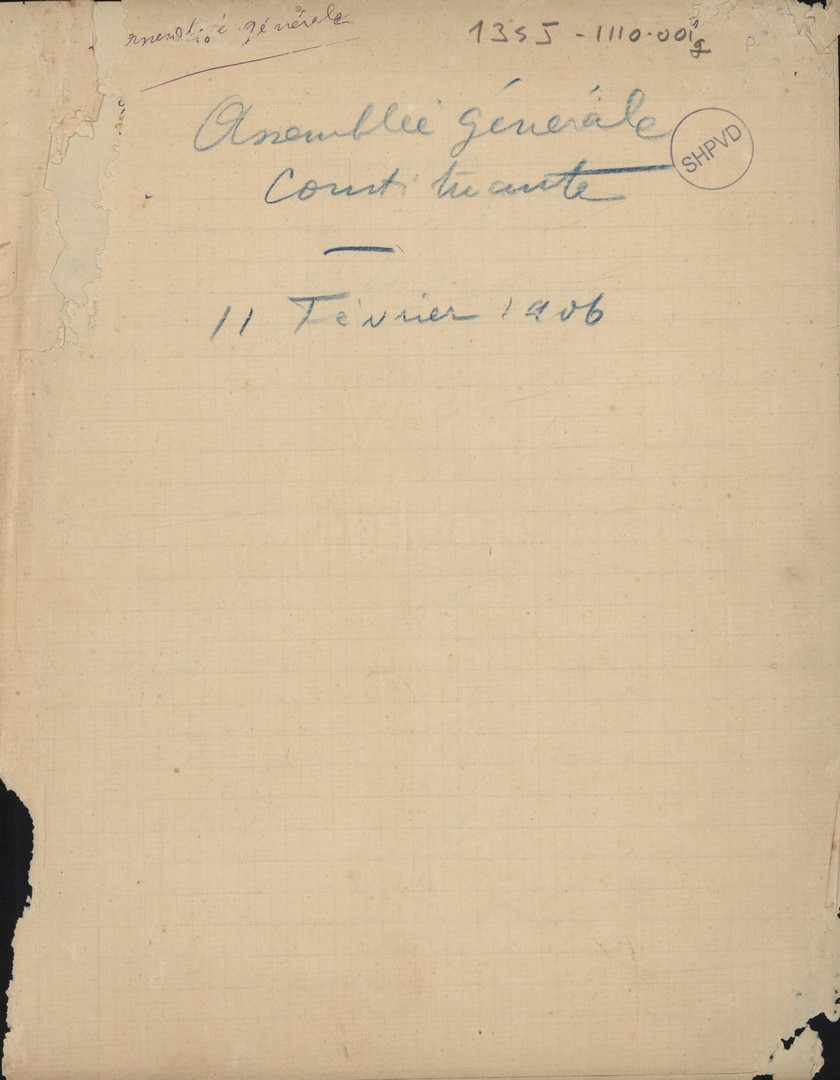 Assemblée générale
1355-1110-001g
Assemblée générale
SHPVD
Constituante
11 Février 1906